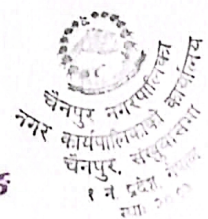 चैनपुर नगरपालिका
नगर कार्यपालिकाको कार्यालय
चैनपुर, संखुवासभा
१ नं. प्रदेश, नेपाल